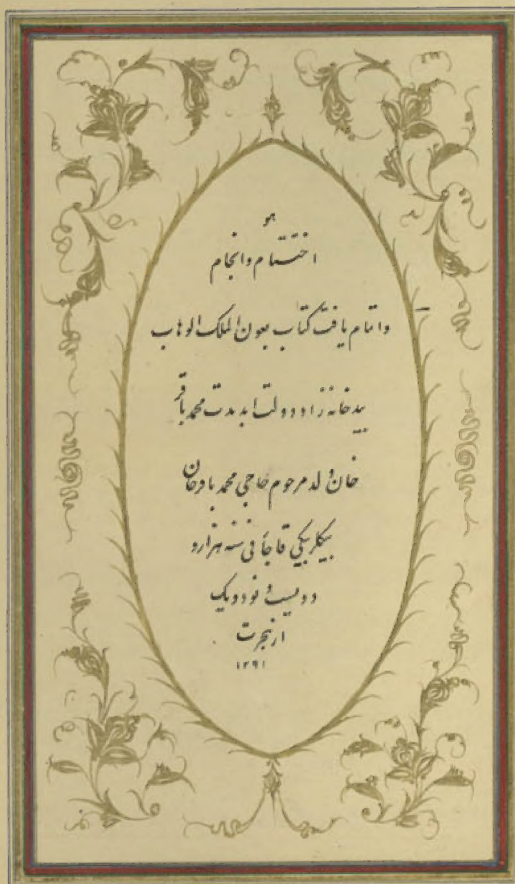 هو
اختتام و انجام
و اتمام یافت کتاب بعون الملک الوهاب
بید خانه‌زاد دولت ابد مدت محمد باقر
خان ولد مرحوم حاجی محمد باقرخان
بیگلربیگی قاجار فی سنه هزار و
دویست و نود و یک
از هجرت
۱۲۹۱